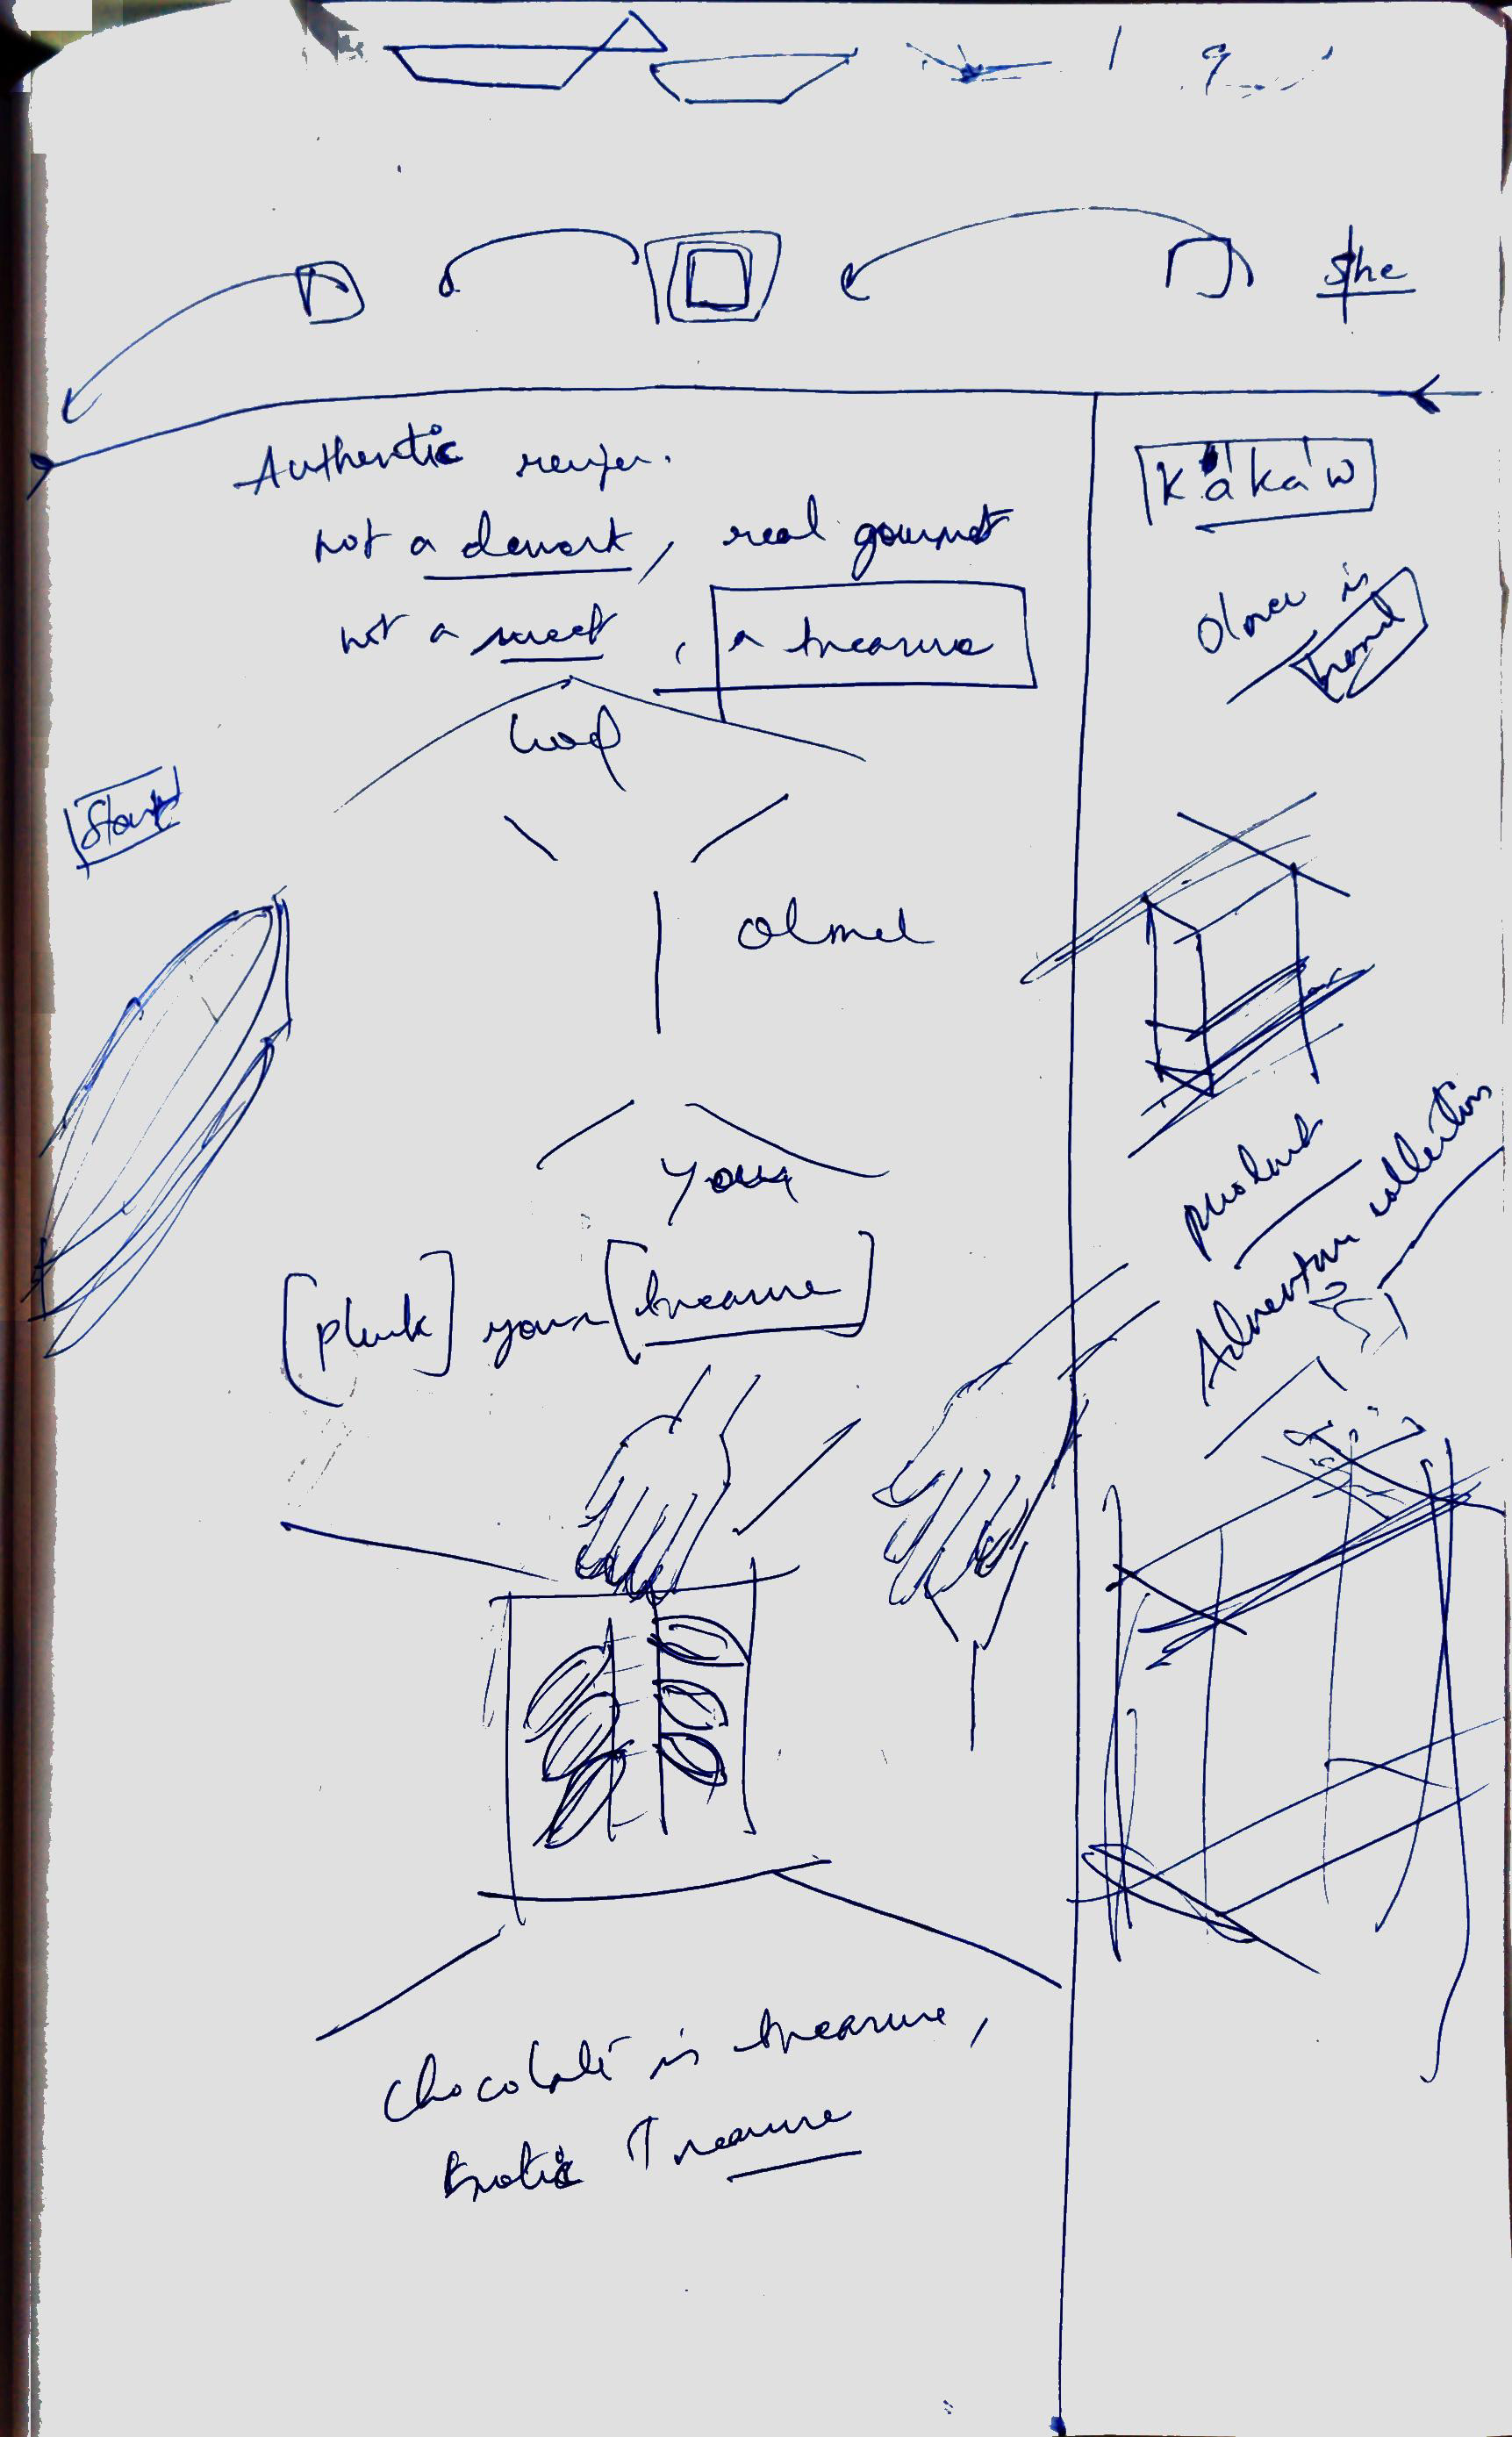 She
Authentic
not a dessert, real gourmet
not a sweet, a treasure
Olmec
your
[pluck] your [treasure]
chocolate is treasure,
Exotic Treasure
Kakaw
Olmec is
brand
product
Adventure collection